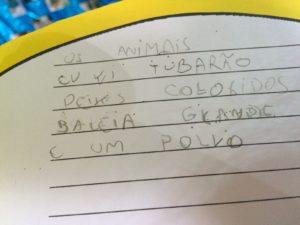 OS ANIMAIS
EU VI TUBARÃO
PEIXES COLOSIDOS
BALEIA GRANDE
E UM POLVO